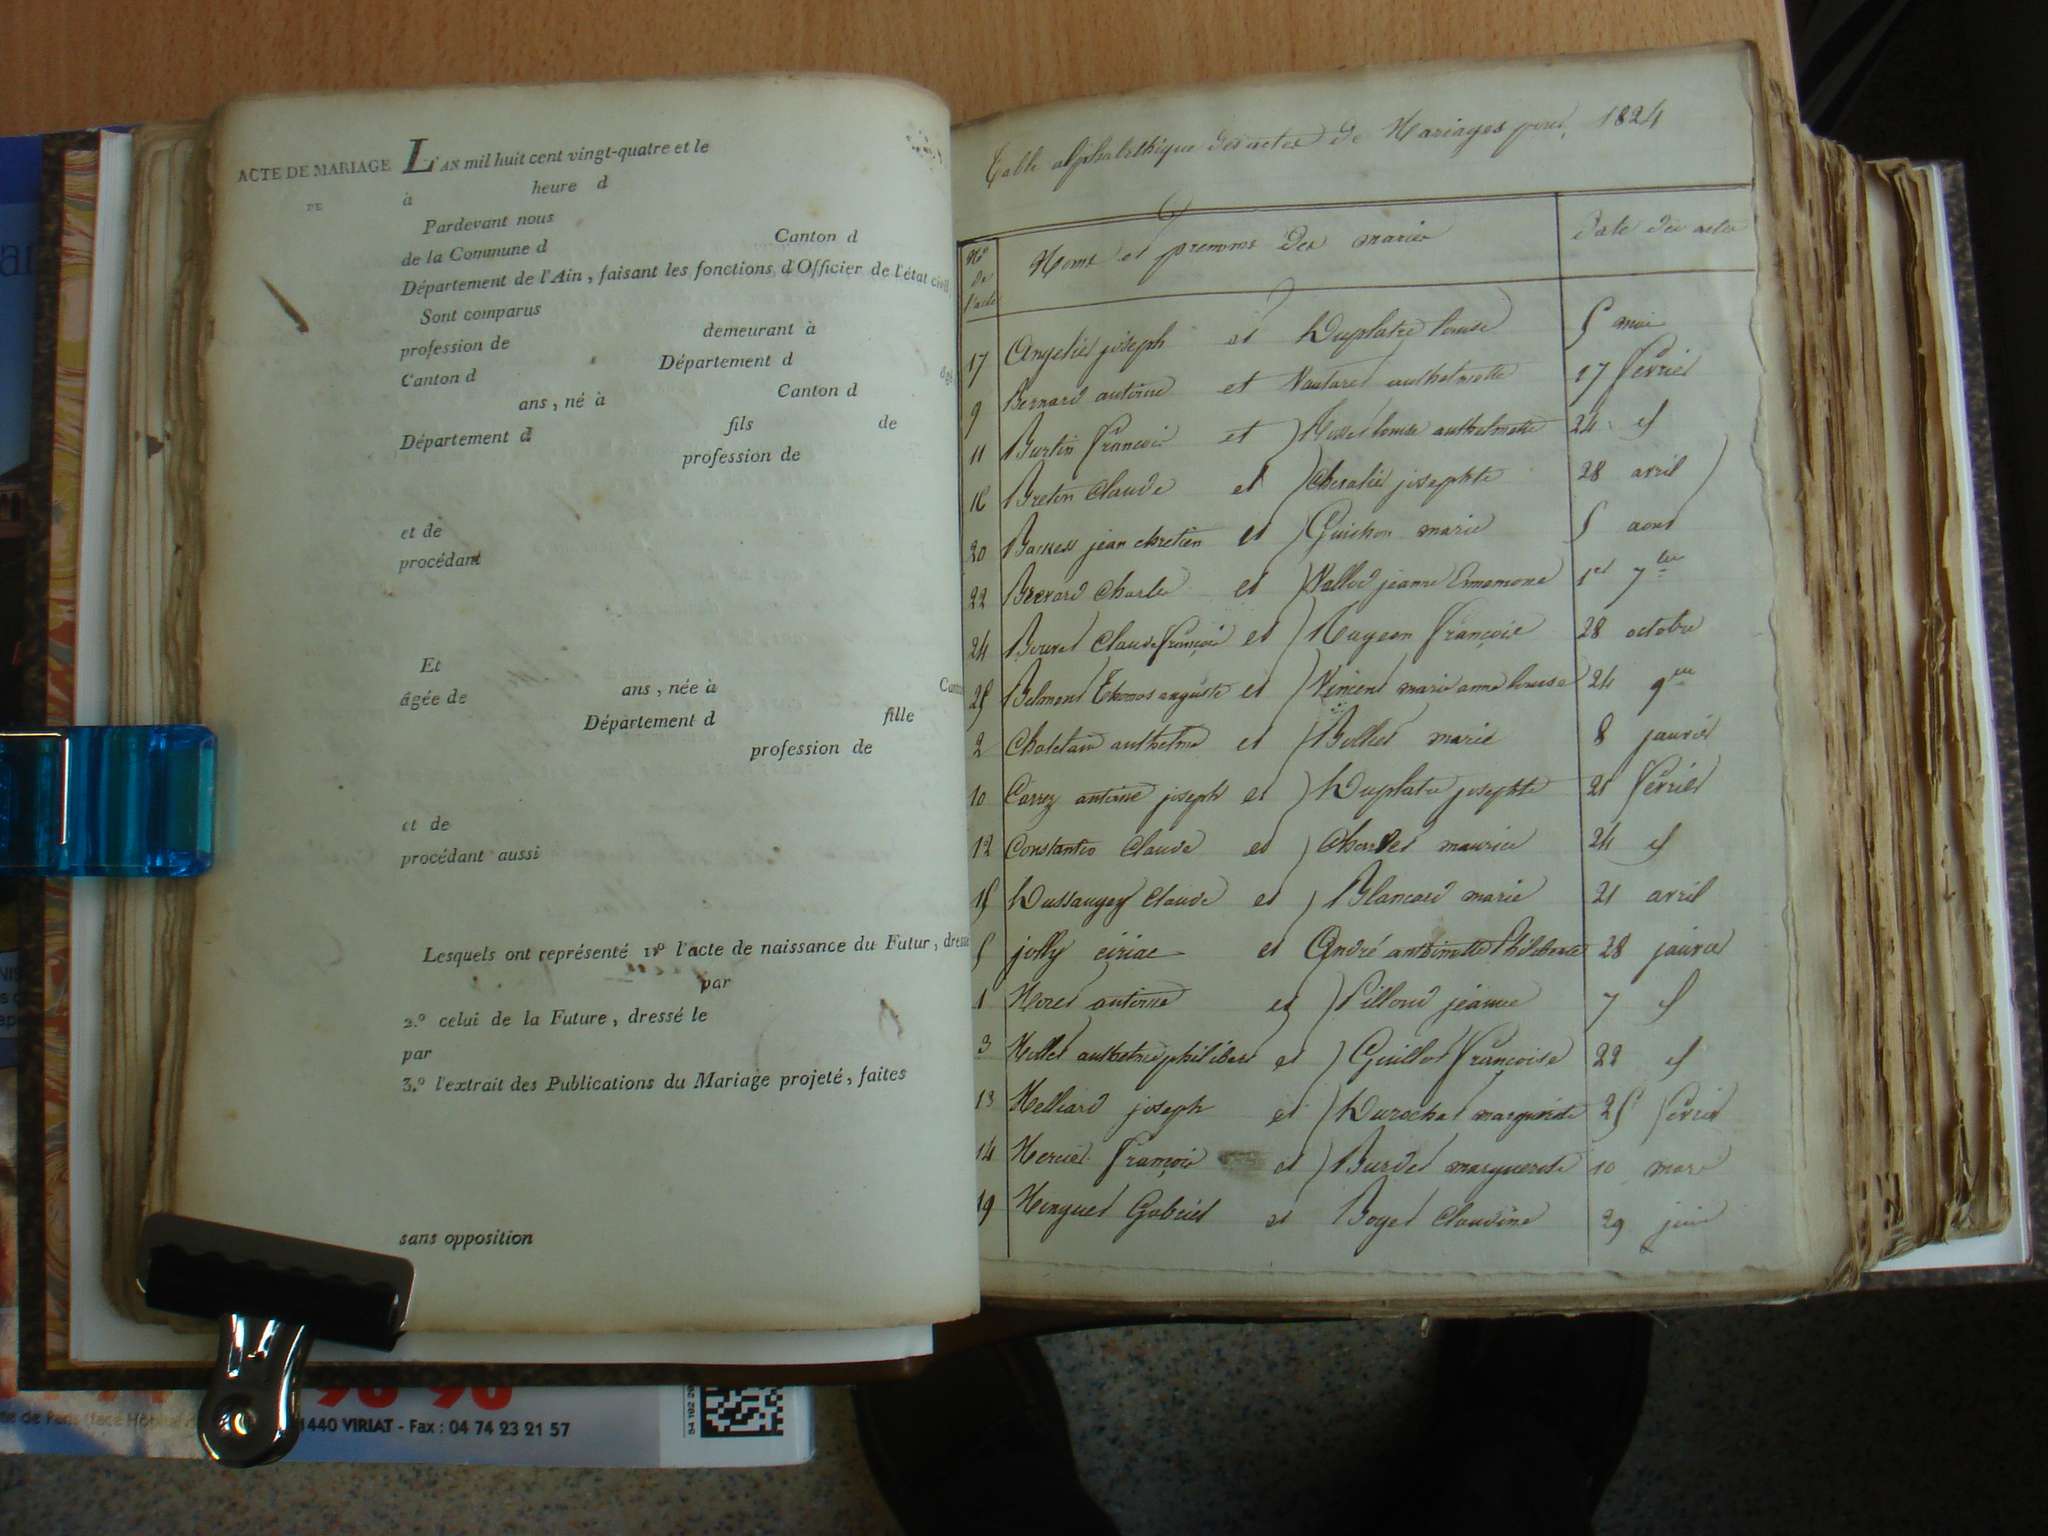 ACTE DE MARIAGE
DE
L'AN mil huit cent vingt-quatre et le
à heure d
Pardevant nous
de la Commune d Canton d
Département de l'Ain, faisant les fonctions d'Officier de l'état civil
Sont comparus
profession de demeurant à
Canton d Département d âgé
ans, né à Canton d
Département d fils de
profession de
et de
procédant
Et
âgée de ans, née à Canton
Département d fille
profession de
et de
procédant aussi
Lesquels ont représenté 1.º l'acte de naissance du Futur, dressé
par
2.º celui de la Future, dressé le
par
3.º l'extrait des Publications du Mariage projeté, faites
sans opposition
Table alphabethique des actes de Mariages pour 1824
Nº de l'acte Noms et prenoms des mariés Date des actes
17 Angelier joseph et Duplatre louise 5 mai
9 Bernard antoine et anthelmette 17 février
11 Burtin François et louise anthelmette 24 d
16 Breton Claude et Chevalier josephte 28 avril
20 jean chretien et Guichon marie 5 aout
22 Brevard Charle et Vallod jeanne Ennemone 1er 7bre
24 Bouvet Claude François et Mugeon Françoise 28 octobre
25 Belmont auguste et Vincent marie anne louise 24 9bre
2 Chatelain anthelme et Bollet marie 8 janvier
10 Carrez antoine joseph et Duplatre josephte 21 février
12 Constantin Claude et maurice 24 d
15 Dussaugey Claude et Blancard marie 21 avril
5 jolly ciriac et André antoinette Philiberte 28 janvier
1 Moret antoine et Pilloud jeanne 7 d
3 Millet anthelme philibert et Guillot Françoise 22 d
13 Melliard joseph et Durochat marguerite 25 février
14 Mercier François et Burdet marguerite 10 mars
19 Minguet Gabriel et Boget Claudine 29 juin
96 96
1440 VIRIAT - Fax : 04 74 23 21 57